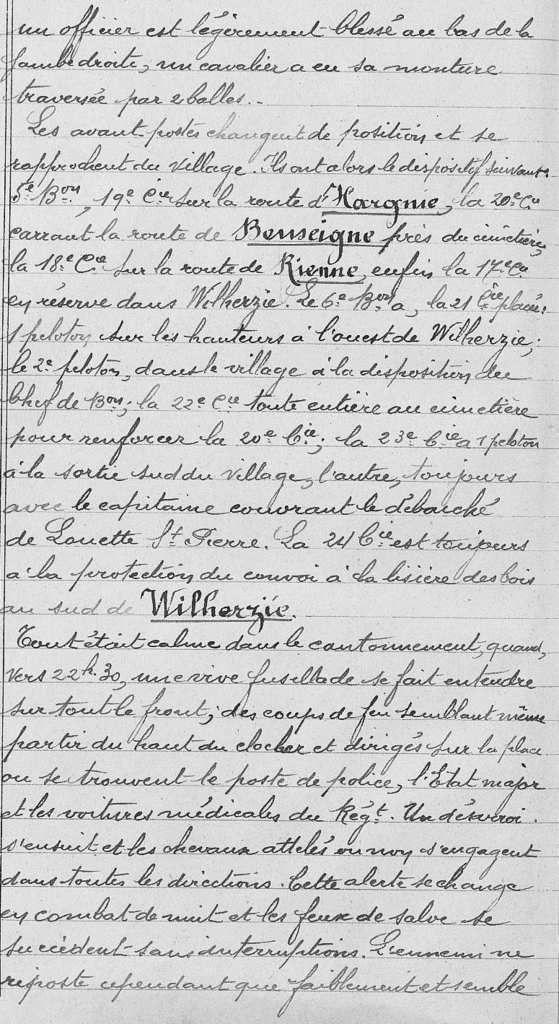 un officier est légèrement blessé au bas de la
jambe droite, un cavalier a eu sa monture
traversée par 2 balles.-
Les avant-postes changent de position et se
rapprochent du village. Ils ont alors le dispositif suivant:
5e Bon, 19e Cie sur la route d'Hargnie, la 20e Cie
carrant la route de Bouseigne près du cimetière,
la 18e Cie sur la route de Rienne, enfin la 17e Cie
en réserve dans Wilherzie. Le 6e Bon a, la 21 Cie placée:
1 peloton sur les hauteurs à l'ouest de Wilherzie;
le 2e peloton, dans le village à la disposition du
Chef de Bon; la 22e Cie toute entière au cimetière
pour renforcer la 20e Cie; la 23e Cie a 1 peloton
à la sortie sud du village, l'autre, toujours
avec le capitaine couvrant le débouché
de Louette St Pierre. La 24 Cie est toujours
à la protection du convoi à la lisière des bois
au sud de Wilherzie.
Tout était calme dans le cantonnement, quand,
vers 22h.30, une vive fusillade se fait entendre
sur tout le front; des coups de feu semblant même
partir du haut du clocher et dirigés sur la place
ou se trouvent le poste de police, l'Etat major
et les voitures médicales du Régt. Un désarroi
s'ensuit et les chevaux attelés ou non s'engagent
dans toutes les directions. Cette alerte se change
en combat de nuit et les feux de salve se
succèdent sans interruptions. L'ennemi ne
riposte cependant que faiblement et semble